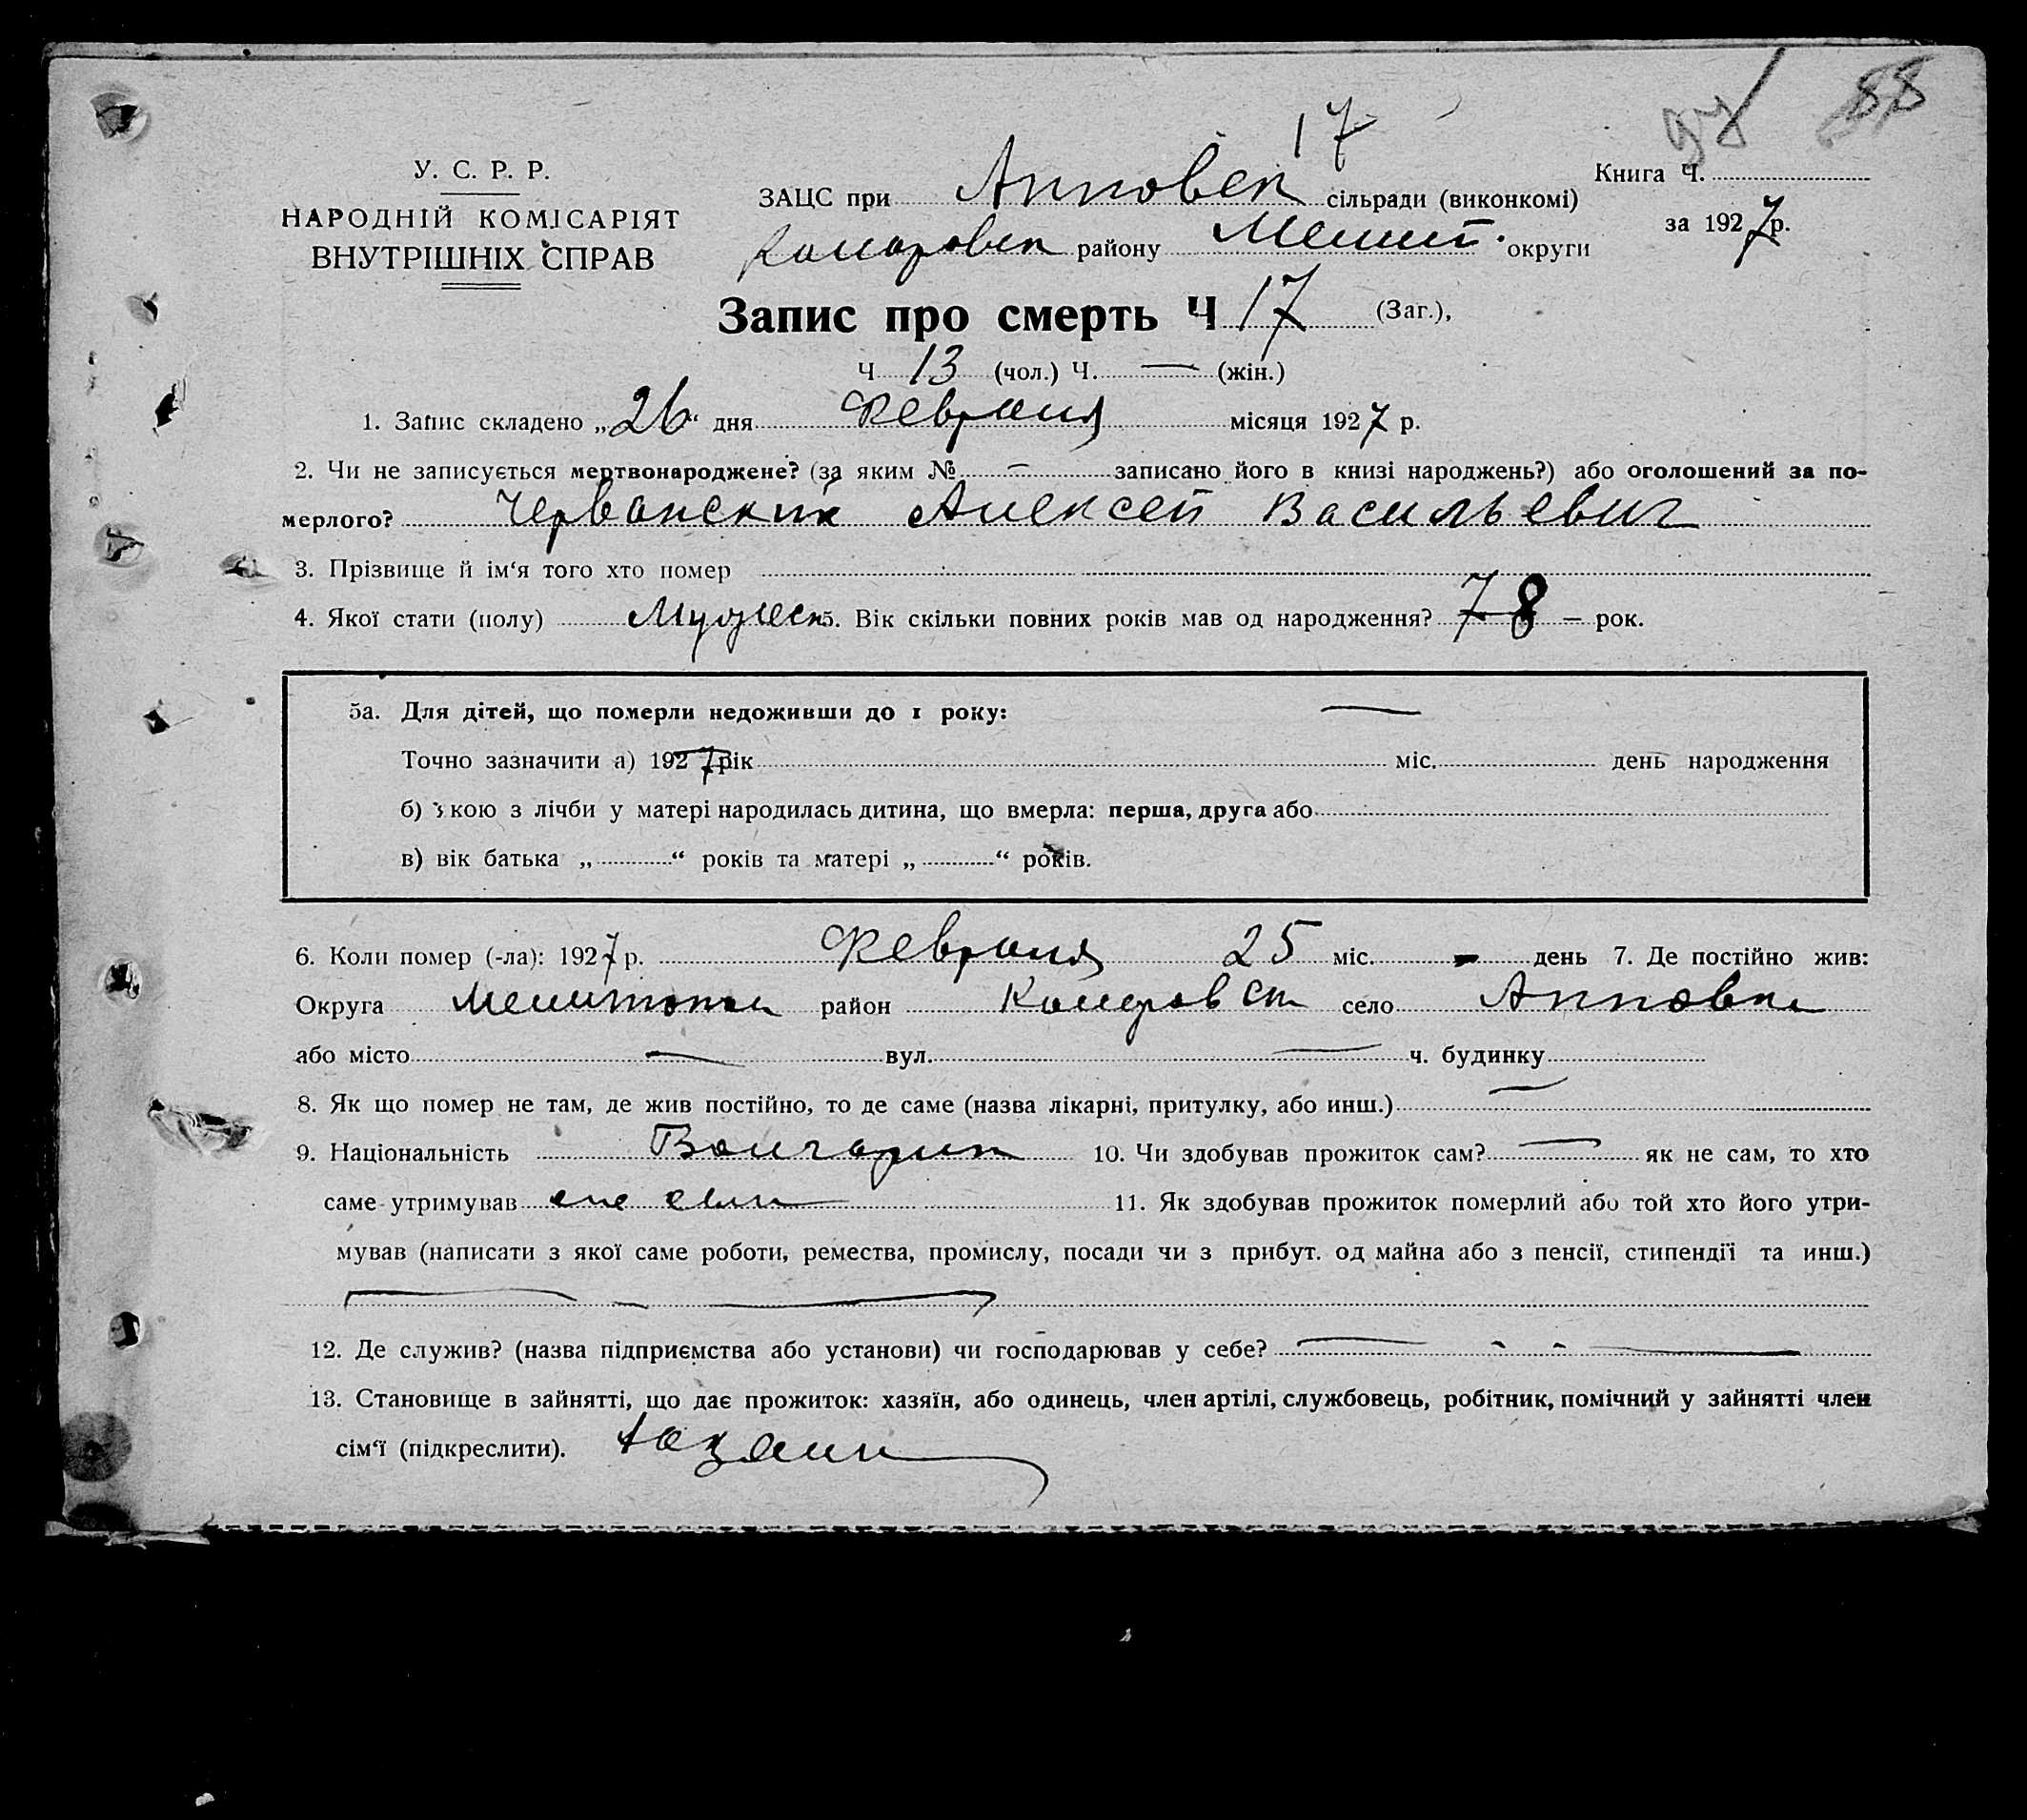 88
97
17
У. С. Р. Р.
НАРОДНІЙ КОМІСАРІЯТ
ВНУТРІШНІХ СПРАВ
ЗАЦС при Анновск сільради (виконкомі)
Комаровск району Мелит. округи
Книга Ч.
за 1927 р.
Запис про смерть Ч 17 (Заг.),
Ч 13 (чол.) Ч. — (жін.)
1. Запис складено „26“ дня Февраля місяця 1927 р.
2. Чи не записується мертвонароджене? (за яким № — записано його в книзі народжень?) або оголошений за по-
мерлого? Червонский Алексей Васильевич
3. Прізвище й ім‘я того хто помер
4. Якої стати (полу) Мужеск 5. Вік скільки повних років мав од народження? 78 — рок.
5а. Для дітей, що померли недоживши до 1 року: —
Точно зазначити а) 1927 рік міс. день народження
б) кою з лічби у матері народилась дитина, що вмерла: перша, друга або
в) вік батька „ “ років та матері „ “ років.
6. Коли помер (-ла): 1927 р. Февраля 25 міс. - день 7. Де постійно жив:
Округа район Комаровск село Анновка
або місто — вул. — ч. будинку
8. Як що помер не там, де жив постійно, то де саме (назва лікарні, притулку, або инш.) —
9. Національність Волгарин 10. Чи здобував прожиток сам? — як не сам, то хто
саме утримував 11. Як здобував прожиток померлий або той хто його утри-
мував (написати з якої саме роботи, ремества, промислу, посади чи з прибут. од майна або з пенсії, стипендії та инш.)
12. Де служив? (назва підприємства або установи) чи господарював у себе? —
13. Становище в зайнятті, що дає прожиток: хазяїн, або одинець, член артілі, службовець, робітник, помічний у зайнятті член
сім‘ї (підкреслити).